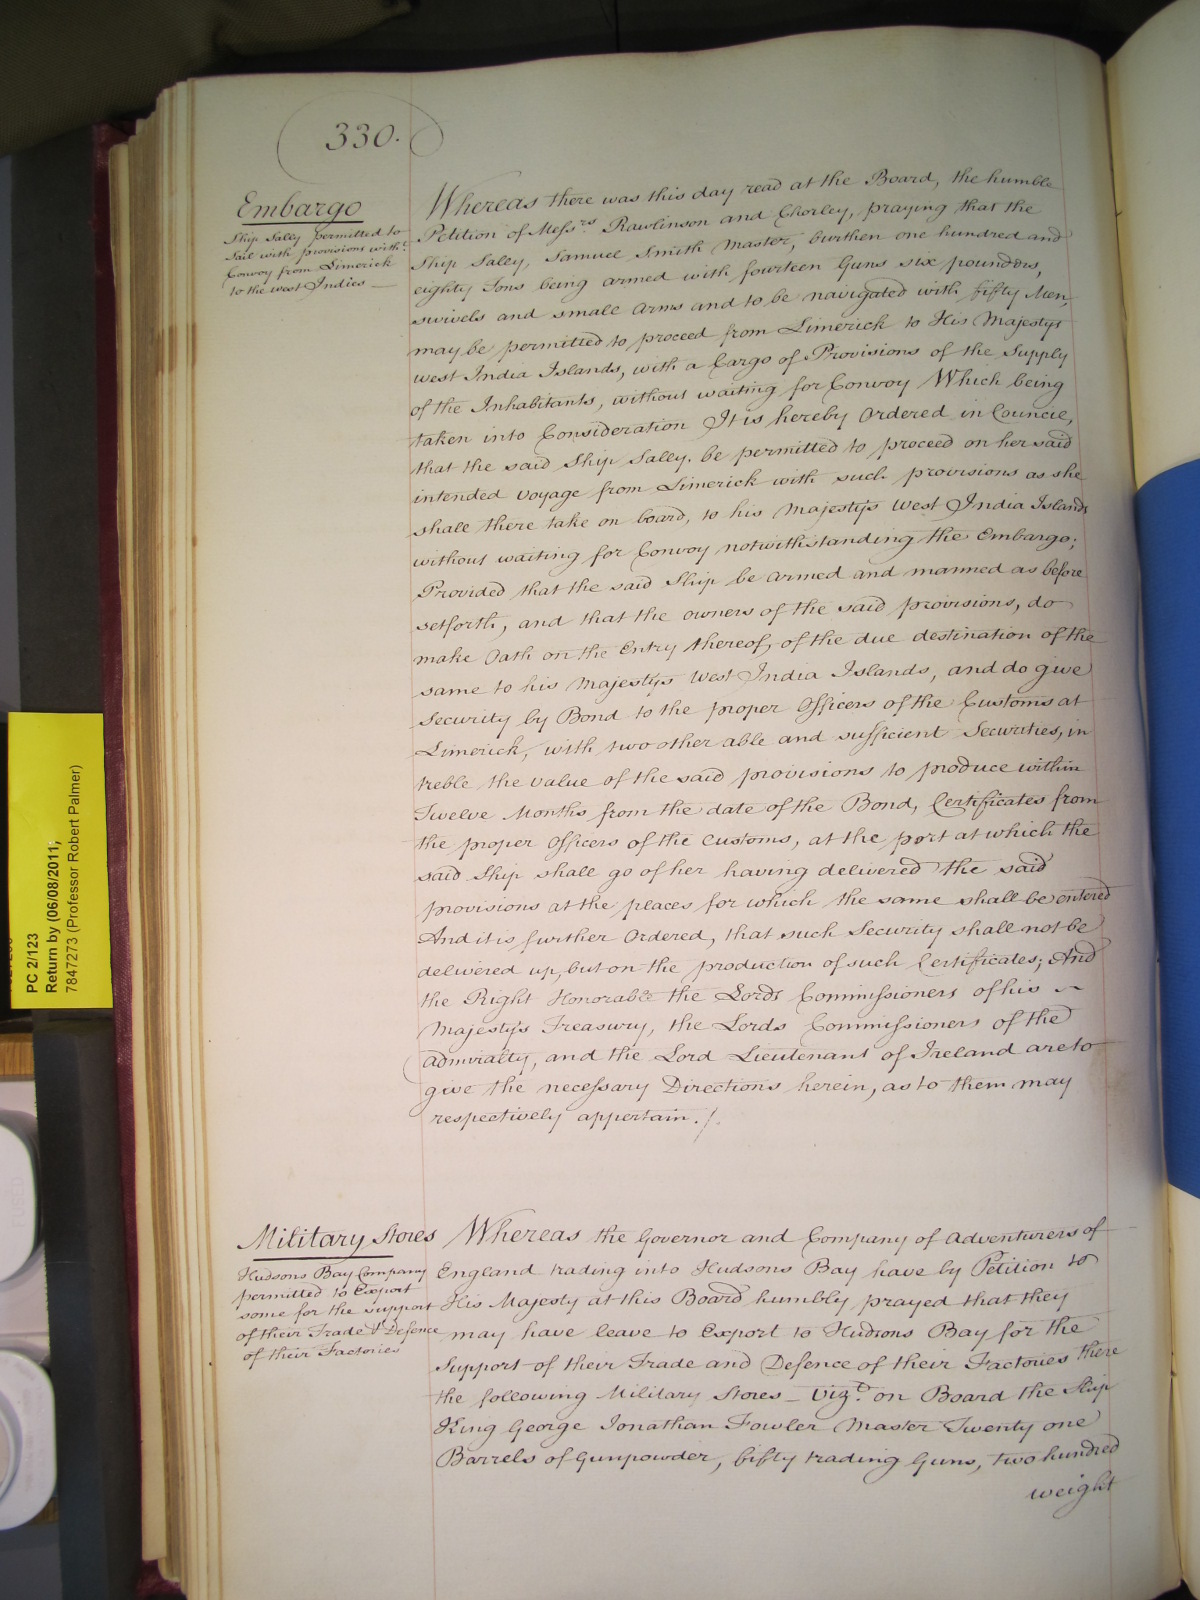 330.
Embargo
Ship Sally permitted to
sail with provisions with.t
Convoy from Limerick
to the West Indies —
Whereas there was this day read at the Board, the humble
Petition of Mess.rs Rawlinson and Chorley, praying that the
Ship Sally, Samuel Smith Master, burthen one hundred and
eighty Tons being armed with fourteen Guns six pounders,
swivels and small Arms and to be navigated with fifty Men,
may be permitted to proceed from Limerick to His Majestys
West India Islands, with a Cargo of Provisions of the Supply
of the Inhabitants, without waiting for Convoy Which being
taken into Consideration It is hereby Ordered in Council,
that the said Ship Sally, be permitted to proceed on her said
intended Voyage from Limerick with such provisions as she
shall there take on board, to his Majestys West India Islands
without waiting for Convoy notwithstanding the Embargo;
Provided that the said Ship be armed and manned as before
setforth, and that the owners of the said provisions, do
make Oath on the Entry thereof, of the due destination of the
same to his Majestys West India Islands, and do give
Security by Bond to the proper Officers of the Customs at
Limerick, with two other able and sufficient Securities, in
treble the value of the said provisions to produce within
Twelve Months from the date of the Bond, Certificates from
the proper Officers of the Customs, at the port at which the
said Ship shall go of her having delivered the said
provisions at the places for which the same shall be entered
And it is further Ordered, that such Security shall not be
delivered up, but on the production of such Certificates; And
the Right Honorable the Lords Commissioners of his ~
Majesty's Treasury, the Lords Commissioners of the
Admiralty, and the Lord Lieutenant of Ireland are to
give the necessary Directions herein, as to them may
respectively appertain./.
Military Stores
Hudsons Bay Company
permitted to Export
some for the support
of their Trade & Defence
of their Factories
Whereas the Governor and Company of Adventurers of
England trading into Hudsons Bay have by Petition to
His Majesty at this Board humbly prayed that they
may have leave to Export to Hudsons Bay for the
Support of their Trade and Defence of their Factories there
the following Military Stores — Viz.t on Board the Ship
King George Jonathan Fowler Master Twenty one
Barrels of Gunpowder, fifty trading Guns, two hundred
weight
PC 2/123
Return by (06/08/2011;
7847273 (Professor Robert Palmer)